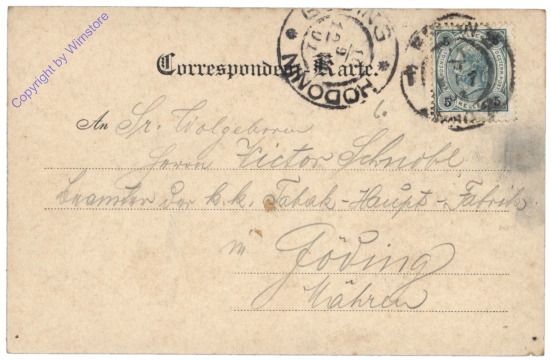 Copyright by Wimstore
GÖDING
HODONIN
5
5
Correspondenz-Karte.
An Sr. Wolgeboren
Herrn Victor Schnobl
Beamter der k.k. Tabak-Haupt-Fabrik
in
Göding
Mähren